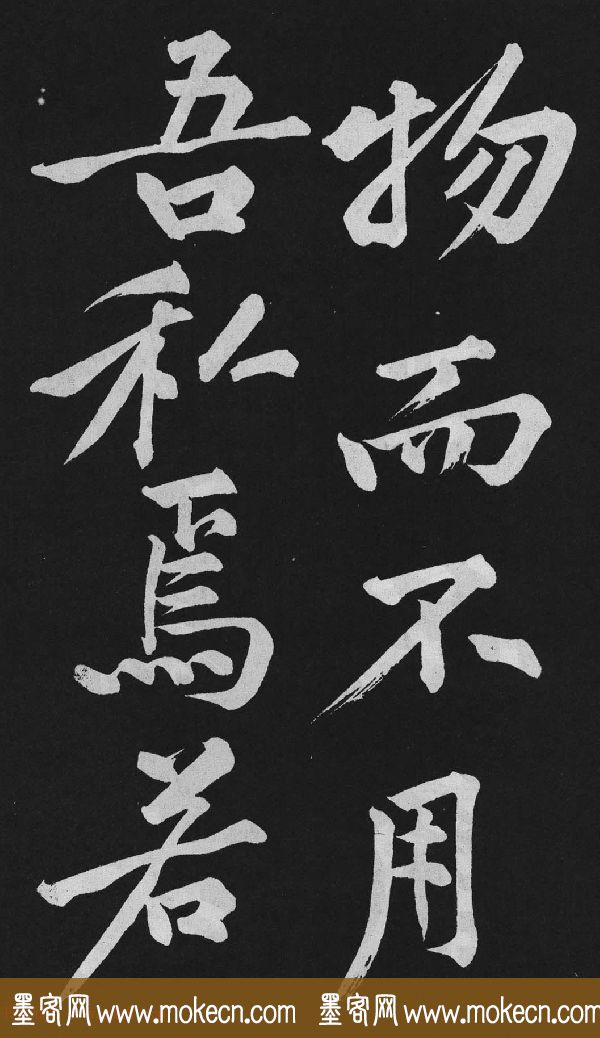 物而不用
吾私焉若
墨客网 www.mokecn.com 墨客网 www.mokecn.com